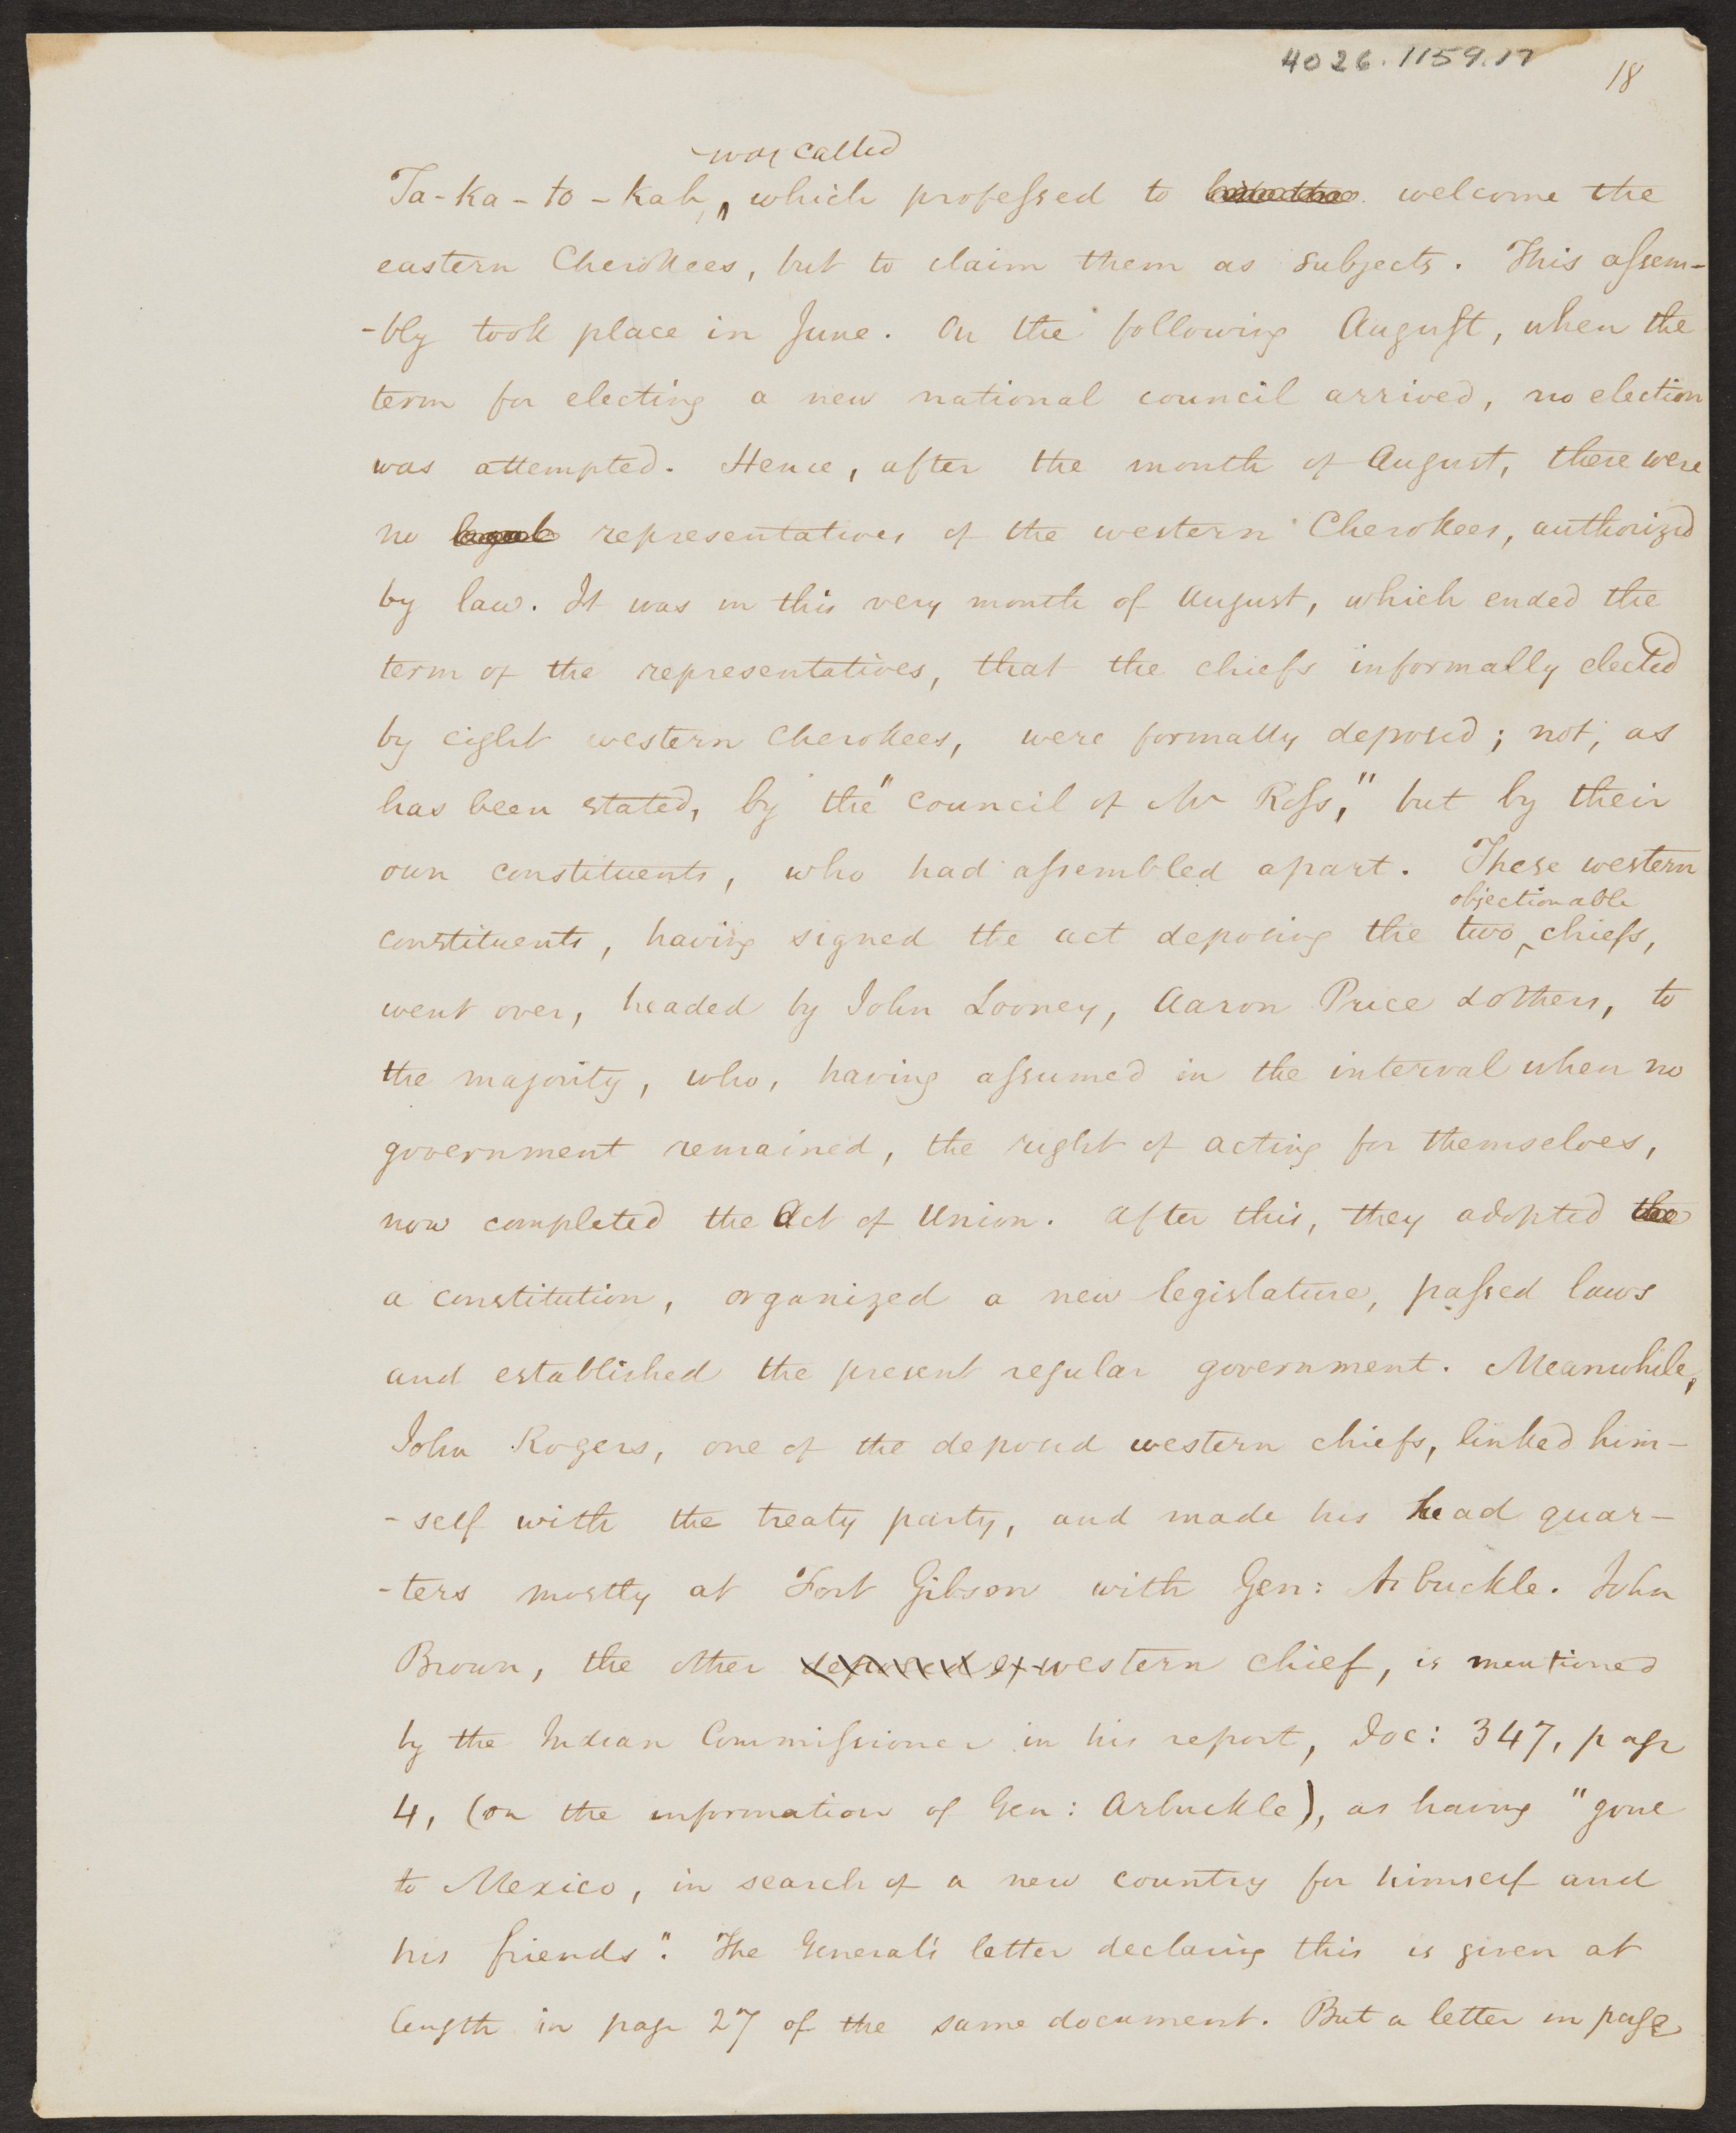 4026.1159.17
18
was called
Ta-ka-to-kah, which professed to welcome the
eastern Cherokees, but to claim them as subjects. This assem-
-bly took place in June. On the following August, when the
term for electing a new national council arrived, no election
was attempted. Hence, after the month of August, there were
no legal representatives of the western Cherokees, authorized
by law. It was in this very month of August, which ended the
term of the representatives, that the chiefs informally elected
by eight western Cherokees, were formally deposed; not, as
has been stated, by the "council of Mr Ross," but by their
own constituents, who had assembled apart. These western
objectionable
constituents, having signed the act deposing the two chiefs,
went over, headed by John Looney, Aaron Price & others, to
the majority, who, having assumed in the interval when no
government remained, the right of acting for themselves,
now completed the Act of Union. After this, they adopted the
a constitution, organized a new legislature, passed laws
and established the present regular government. Meanwhile,
John Rogers, one of the deposed western chiefs, linked him-
-self with the treaty party, and made his head quar-
-ters mostly at Fort Gibson with Gen: Arbuckle. John
Brown, the other deposed ex-western chief, is mentioned
by the Indian Commissioner in his report, Doc: 347, page
4, (on the information of Gen: Arbuckle), as having "gone
to Mexico, in search of a new country for himself and
his friends". The General's letter declaring this is given at
length in page 27 of the same document. But a letter in page